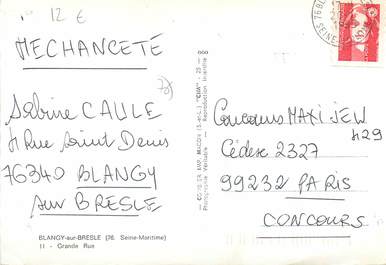 12 €
MECHANCETÉ
Sabine CAULE
11 Rue Saint Denis
76340 BLANGY
sur BRESLE
BLANGY-sur-BRESLE (76. Seine-Maritime)
11 - Grande Rue
Photographie Véritable Reproduction Interdite
76 BL
Concours MAXI JEU
429
Cédex 2327
99232 PARIS
CONCOURS